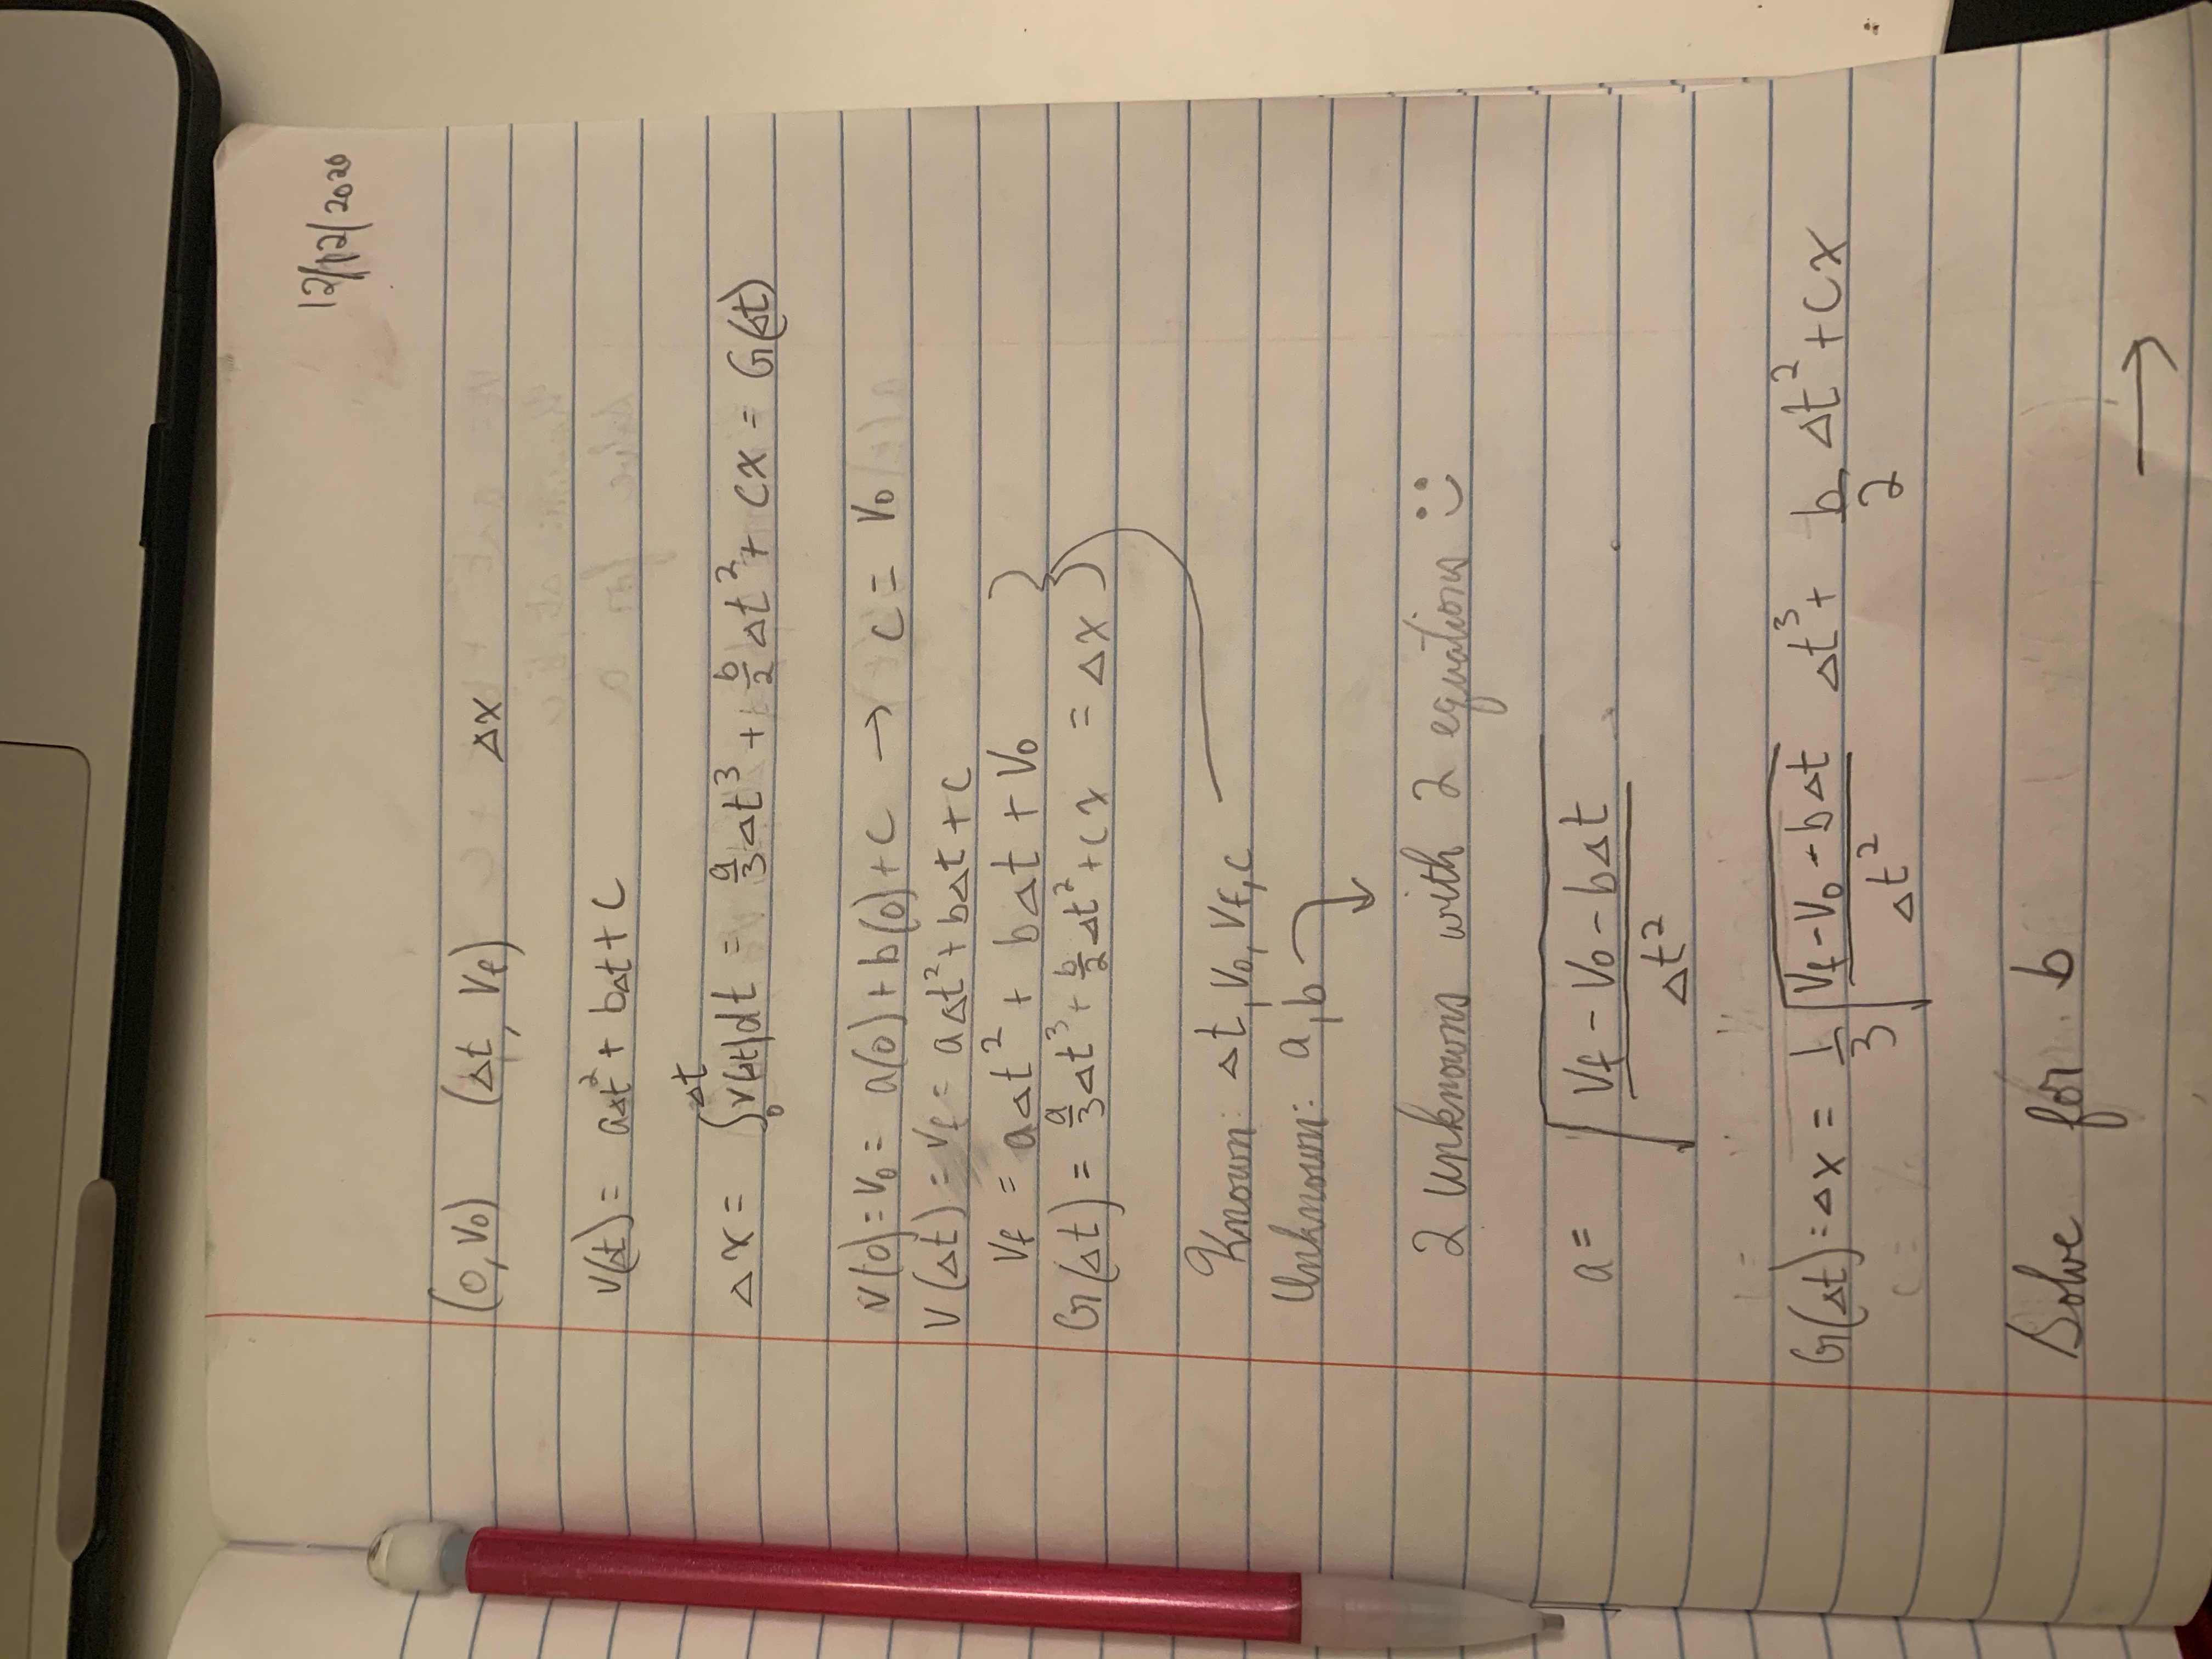 12/12/2020
(0, V₀) (Δt, Vf) Δx
V(Δt) = aΔt² + bΔt + C
Δx = ∫₀^Δt V(Δt)dt = a/3 Δt³ + b/2 Δt² + Cx = G(Δt)
V(0) = V₀ = a(0) + b(0) + C → C = V₀
V(Δt) = Vf = aΔt² + bΔt + C
Vf = aΔt² + bΔt + V₀
G(Δt) = a/3 Δt³ + b/2 Δt² + Cx = Δx
Known: Δt, V₀, Vf, C
Unknown: a, b
2 unknowns with 2 equations :)
a = [Vf - V₀ - bΔt / Δt²
G(Δt) = Δx = 1/3 [Vf - V₀ - bΔt / Δt² Δt³ + b/2 Δt² + Cx
Solve for b
→